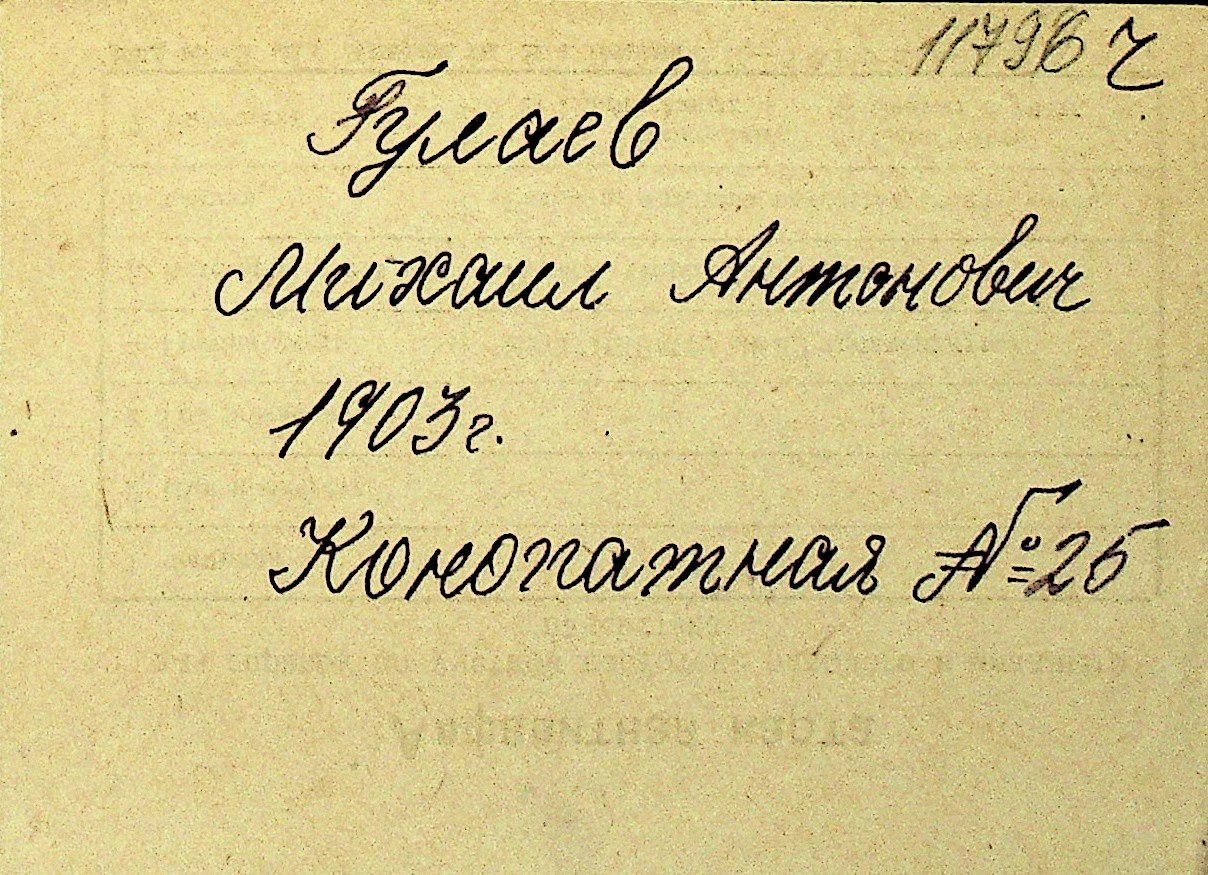 11796 Ч
Гулаев
Михаил Антонович
1903г.
Конопатная №25